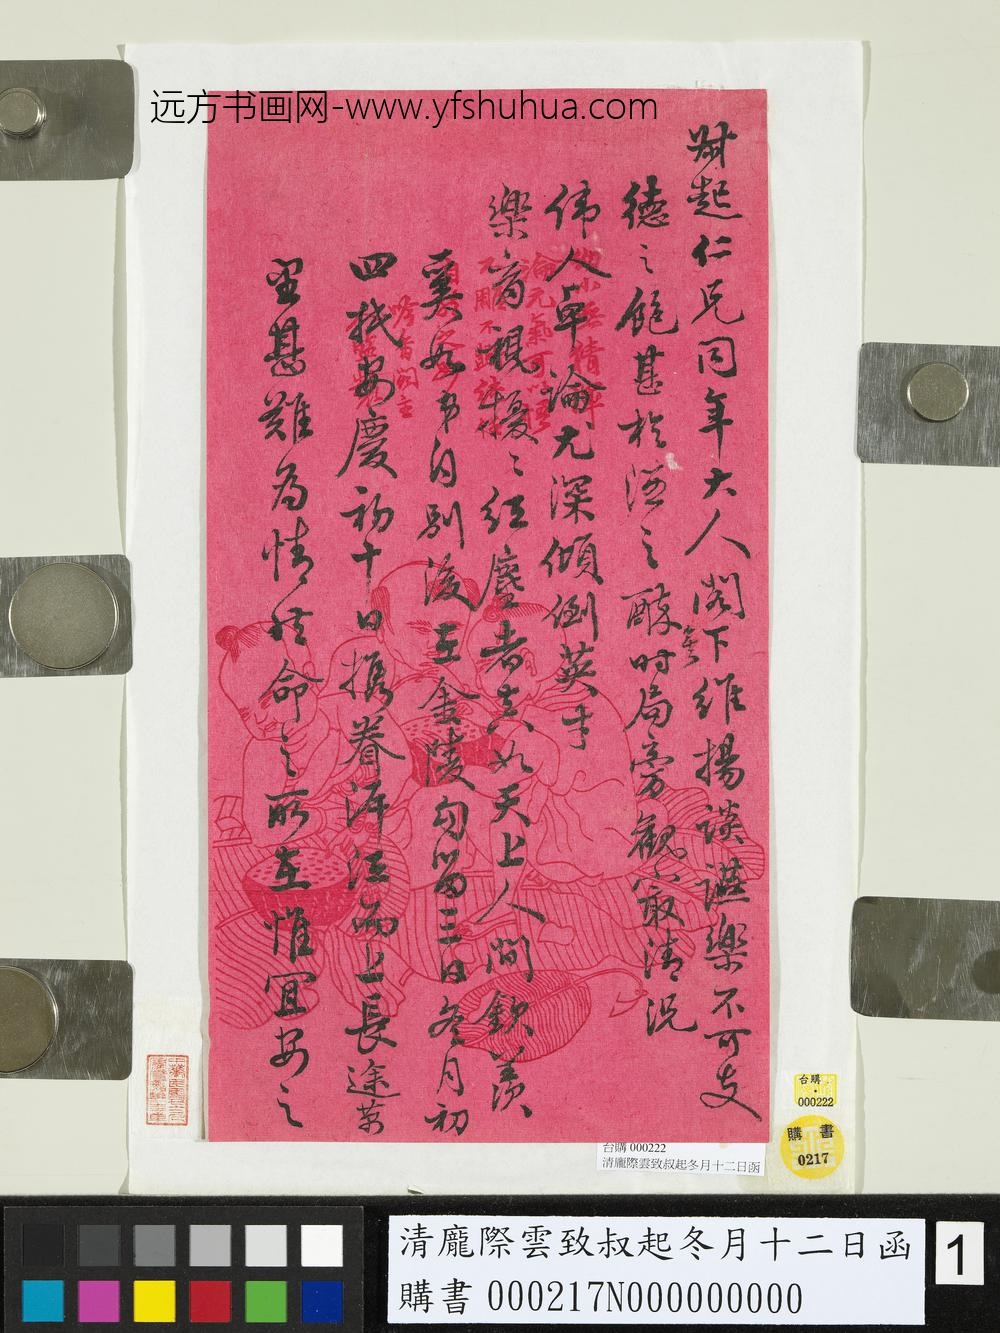 远方书画网-www.yfshuhua.com
叔起仁兄同年大人阁下维揚談讌樂不可支
德之飽甚於酒之醉時局旁觀最清況
偉人卓論尤深傾倒英才
樂育視擾擾紅塵者真如天上人間欽羨
奚如弟自別後在金陵勾留三日冬月初
四抵安慶初十日攜眷泝江而上長途
甚難為情然命之所在惟宜安之
台購
000222
購書
0217
台購 000222
清龐際雲致叔起冬月十二日函
清龐際雲致叔起冬月十二日函
購書 000217N000000000
1